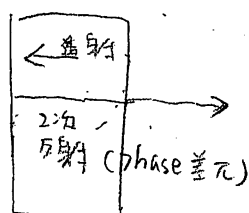 透射
2次
反射 (phase差π)